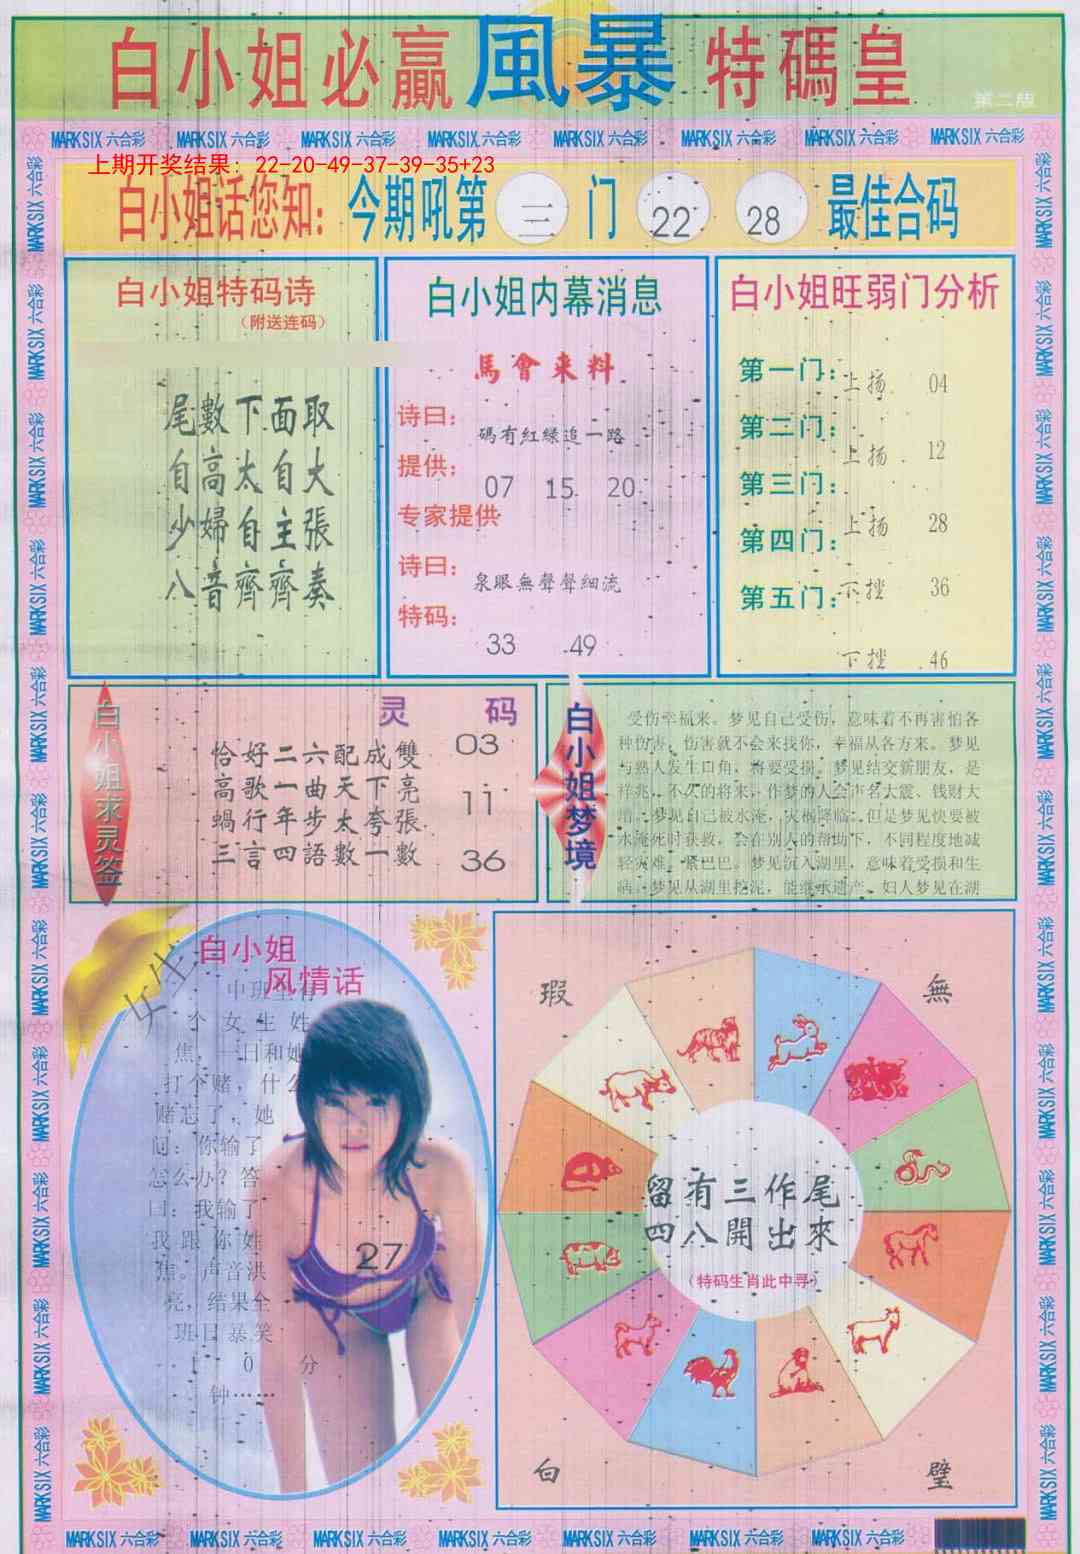 白小姐必贏風暴特碼皇
第二版
MARK SIX 六合彩 MARK SIX 六合彩 MARK SIX 六合彩 MARK SIX 六合彩 MARK SIX 六合彩 MARK SIX 六合彩 MARK SIX 六合彩 MARK SIX 六合彩
上期开奖结果：22-20-49-37-39-35+23
白小姐话您知：今期吼第 三 门 22 28 最佳合码
白小姐特码诗
（附送连码）
尾數下面取
自高太自大
少婦自主張
八音齊齊奏
白小姐内幕消息
馬會来料
诗曰：碼有紅緑追一路
提供：
07 15 20
专家提供
诗曰：泉眼無聲聲細流
特码：
33 49
白小姐旺弱门分析
第一门：上扬 04
第二门：上扬 12
第三门：上扬 28
第四门：下挫 36
第五门：下挫 46
白小姐求灵签
灵码
恰好二六配成雙 03
高歌一曲天下亮
蝸行年步太夸張 11
三言四語數一數 36
白小姐梦境
受伤幸福来。梦见自己受伤，意味着不再害怕各
种伤害，伤害就不会来找你，幸福从各方来。梦见
与熟人发生口角，将要受损。梦见结交新朋友，是
祥兆，不久的将来，作梦的人会声名大震、钱财大
增。梦见自己被水淹，灾祸降临，但是梦见快要被
水淹死时获救，会在别人的帮助下，不同程度地减
轻灾难。紧巴巴。梦见沉入湖里，意味着受损和生
病。梦见从湖里挖泥，能继承遗产。妇人梦见在湖
白小姐
风情话
女生
中班上有
个女生姓
焦，一日和她
打个赌，什么
赌忘了，她
问：你输了
怎么办？答
曰：我输了
我跟你姓
焦。声音洪
亮，结果全
班日暴笑
10分
钟……
27
瑕 無
留有三作尾
四八開出來
（特码生肖此中寻）
白 璧
MARK SIX 六合彩 MARK SIX 六合彩 MARK SIX 六合彩 MARK SIX 六合彩 MARK SIX 六合彩 MARK SIX 六合彩 MARK SIX 六合彩